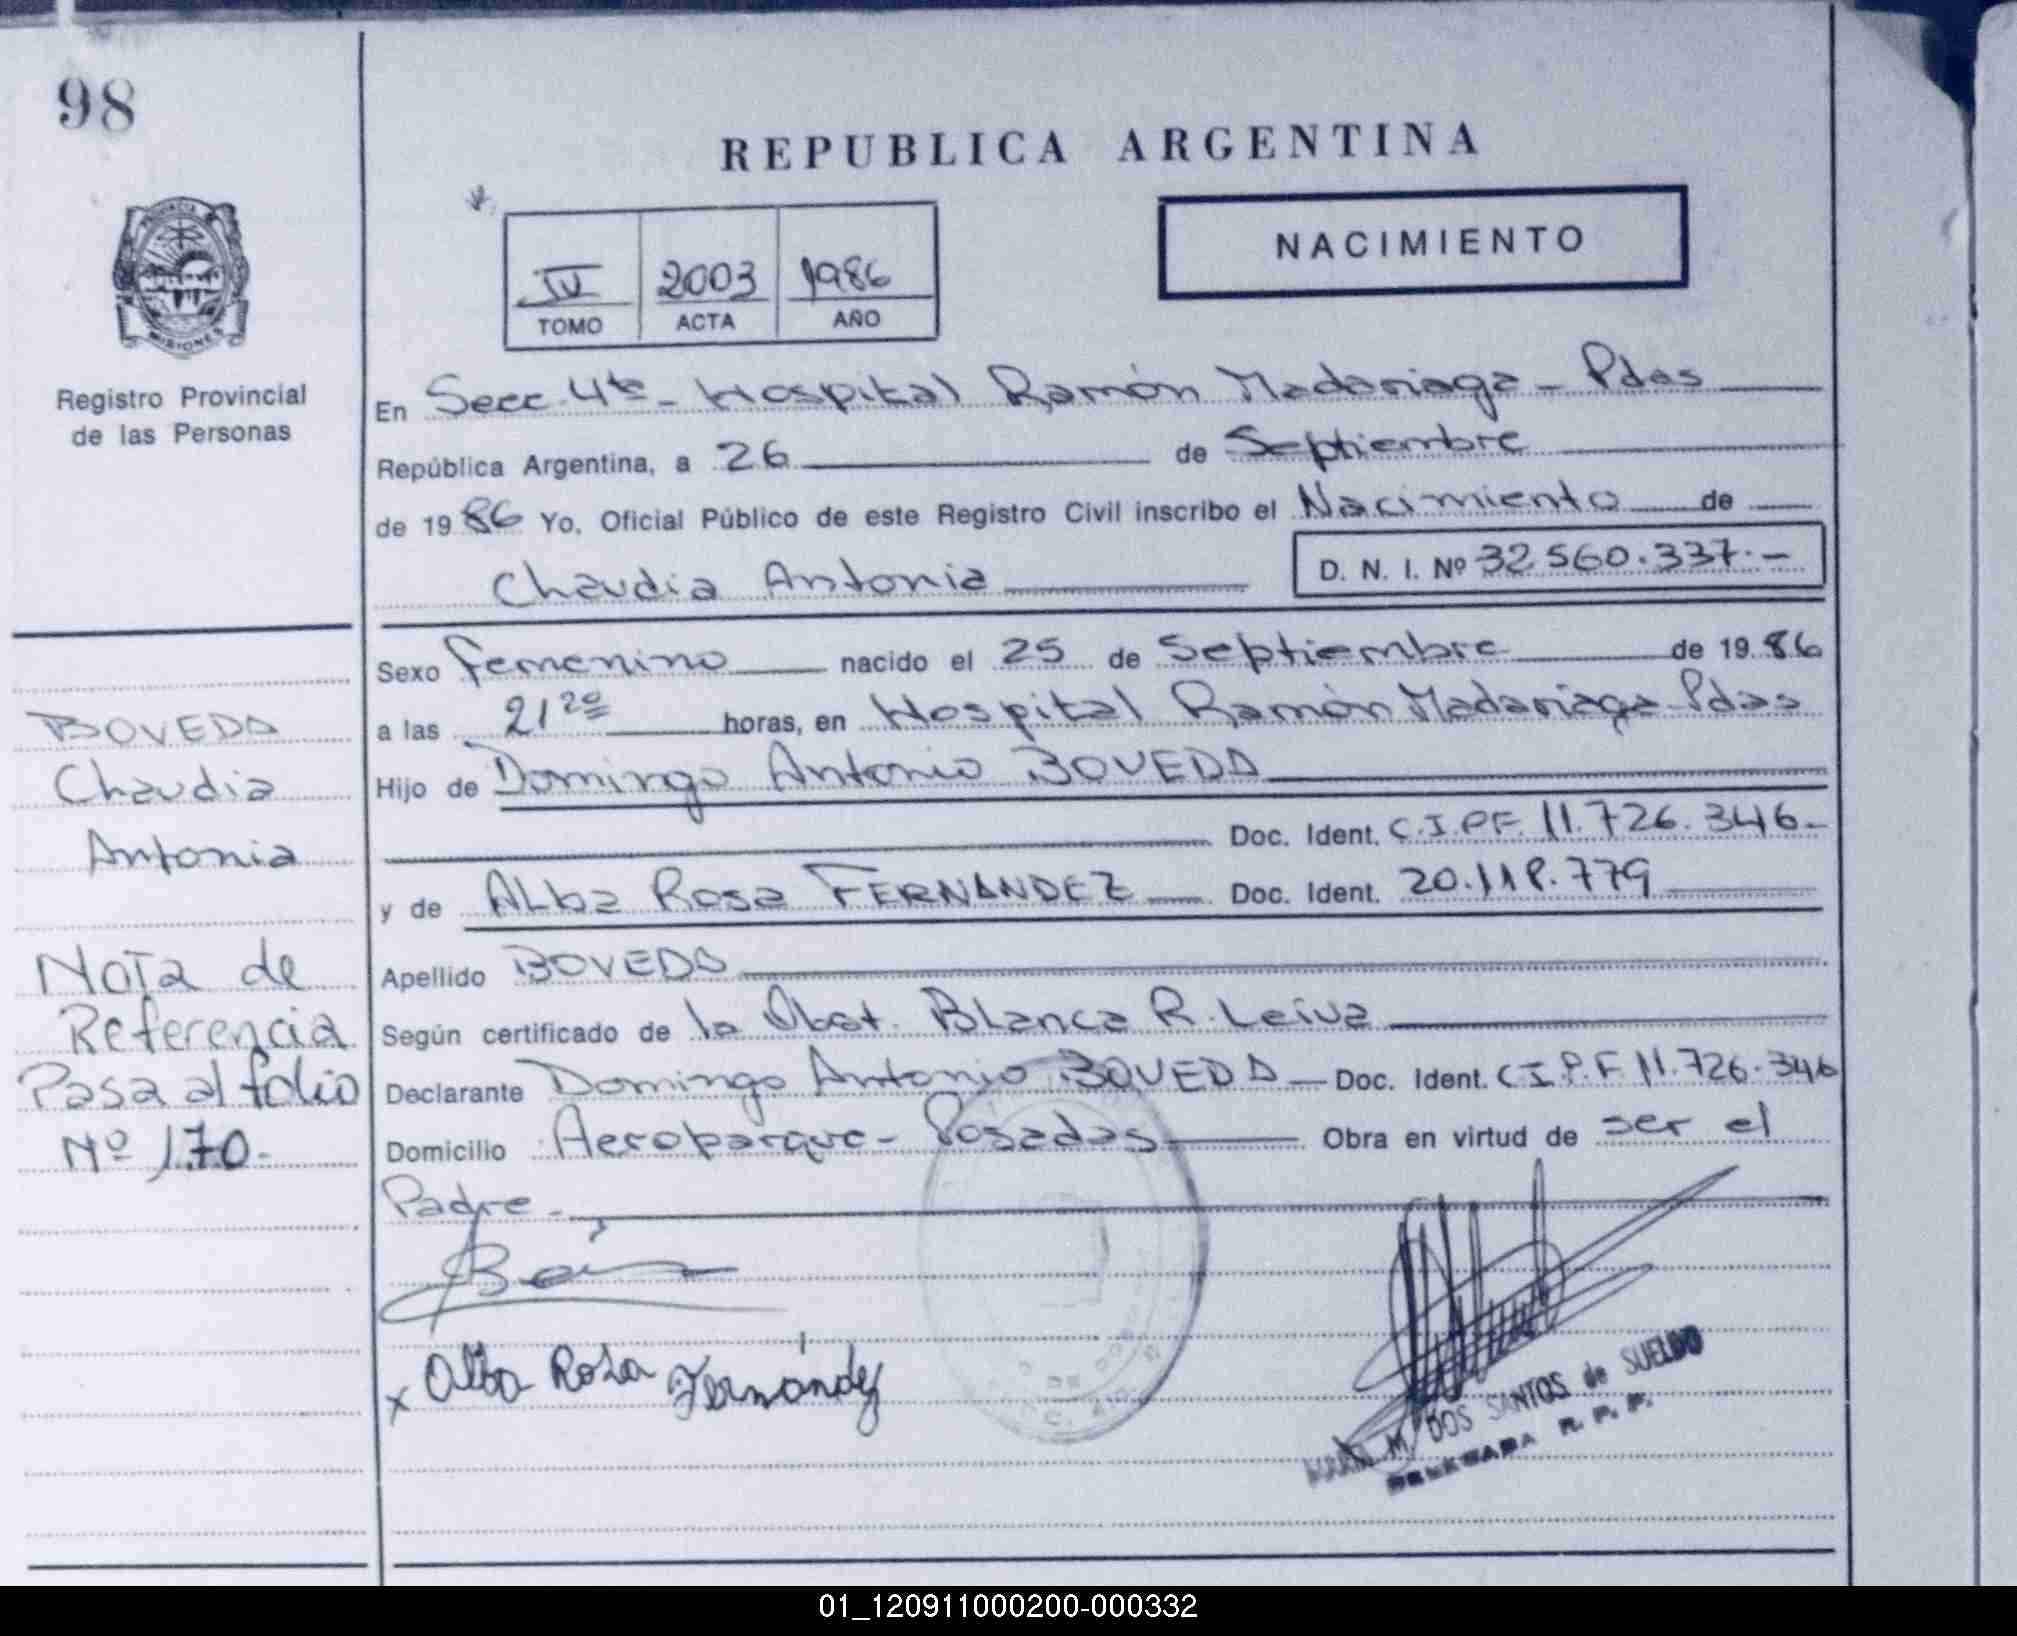 98
REPUBLICA ARGENTINA
PROVINCIA DE
MISIONES
IV 2003 1986
TOMO ACTA AÑO
NACIMIENTO
Registro Provincial
de las Personas
En Secc. 4ta - Hospital Ramón Madariaga - Pdas
República Argentina, a 26 de Septiembre
de 1986 Yo, Oficial Público de este Registro Civil inscribo el Nacimiento de
Chaudia Antonia D. N. I. Nº 32.560.337.-
Sexo femenino nacido el 25 de Septiembre de 1986
a las 21 20 horas, en Hospital Ramón Madariaga - Pdas
Hijo de Domingo Antonio BOVEDA
Doc. Ident. C.I.P.F. 11.726.346.-
y de Alba Rosa FERNANDEZ Doc. Ident. 20.118.779
Apellido BOVEDA
Según certificado de la Obst. Blanca R. Leiva
Declarante Domingo Antonio BOVEDA Doc. Ident. C.I.P.F 11.726.346
Domicilio Aeroparque - Posadas Obra en virtud de ser el
Padre -
BOVEDA
Chaudia
Antonia
Nota de
Referencia
Pasa al folio
Nº 170.-
x Alba Rosa Fernández
M. DOS SANTOS de SUELDO
DELEGADA R. P. P.
01_120911000200-000332